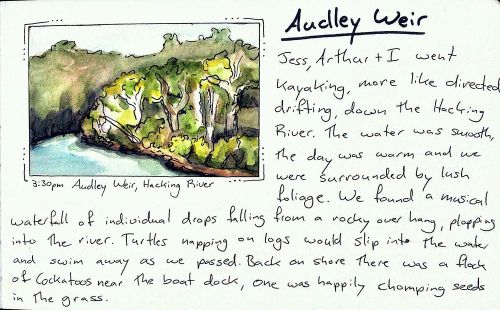 Audley Weir
Jess, Arthur + I went
kayaking, more like directed
drifting, down the Hacking
River. The water was smooth,
the day was warm and we
were surrounded by lush
foliage. We found a musical
waterfall of individual drops falling from a rocky over hang, plopping
into the river. Turtles napping on logs would slip into the water
and swim away as we passed. Back on shore there was a flock
of Cockatoos near the boat dock, one was happily chomping seeds
in the grass.
3:30pm Audley Weir, Hacking River